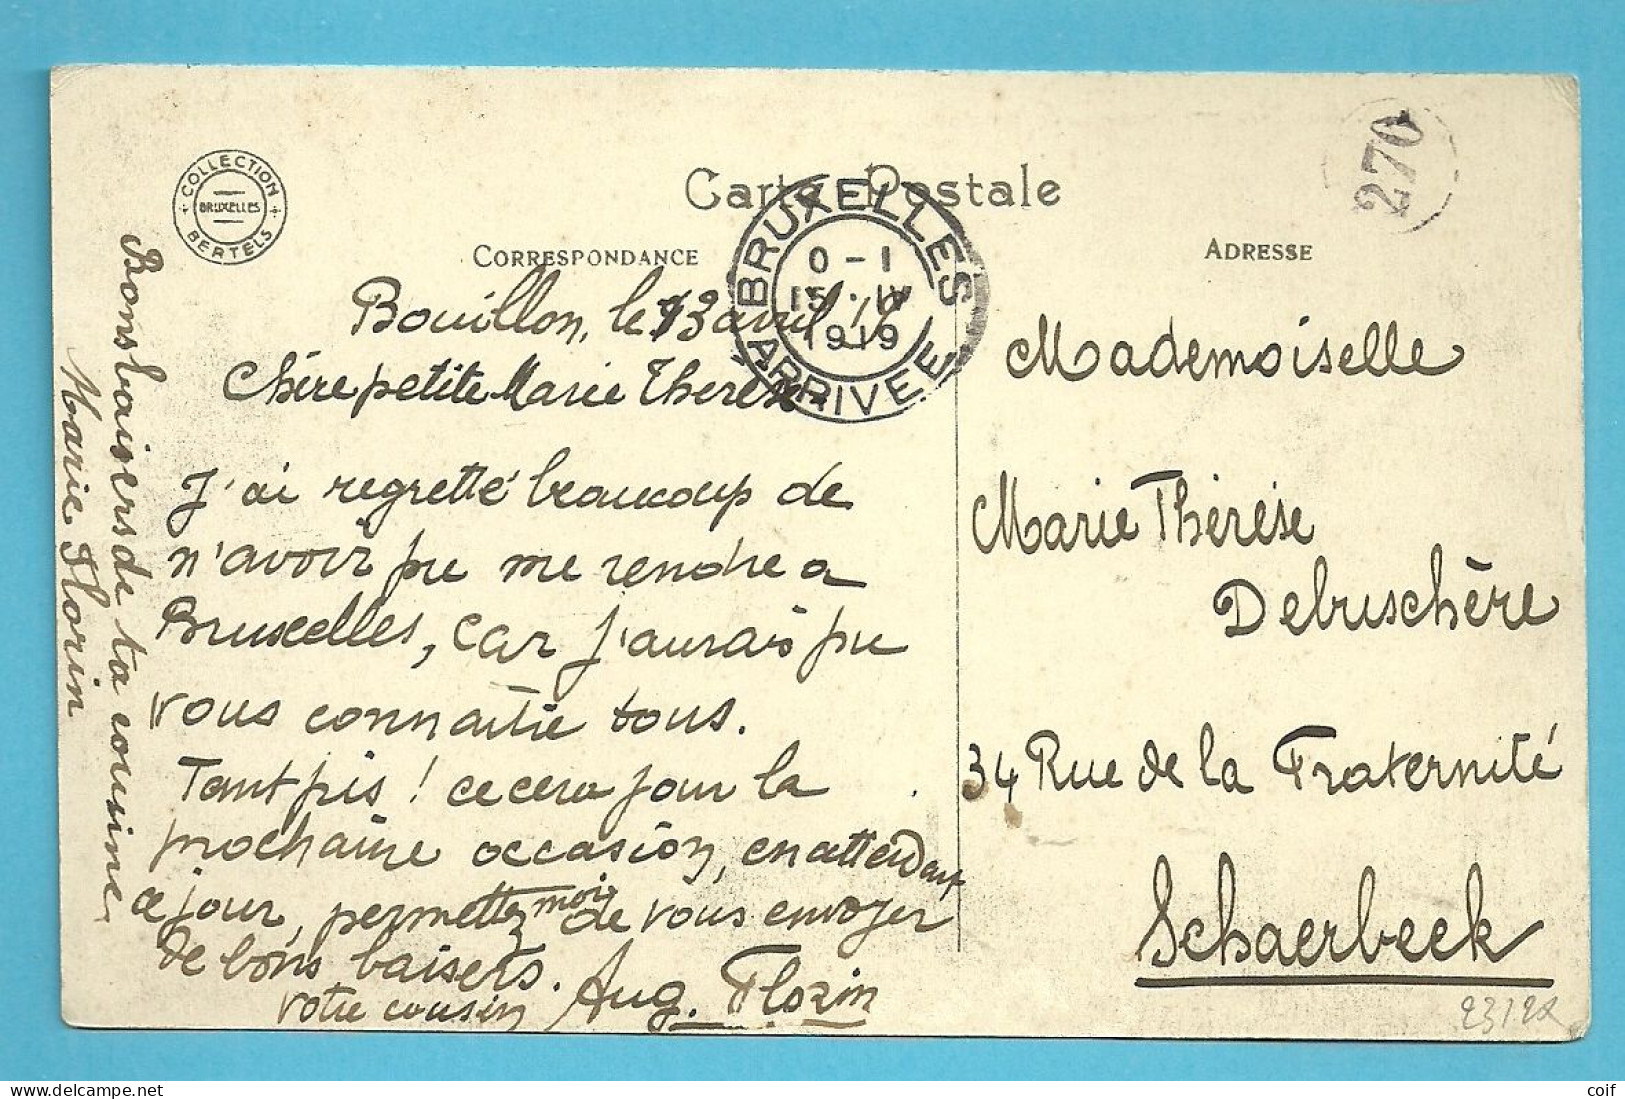 Carte Postale
COLLECTION
BRUXELLES
BERTELS
CORRESPONDANCE
ADRESSE
270
BRUXELLES
0 - 1
15 · IV
1919
ARRIVEE
Bouillon, le 13 avril 19
Chère petite Marie Therese
J'ai regretté beaucoup de
n'avoir pu me rendre a
Bruxelles, car j'aurais pu
vous connaitre tous.
Tant pis ! ce cera pour la
prochaine occasion, en attendant
ce jour, permettez moi de vous envoyer
de bons baisers.
votre cousin Aug. Florin
Bons baisers de ta cousine
Marie Florin
Mademoiselle
Marie Thérèse
Debruschère
34 Rue de la Fraternité
Schaerbeek
coif